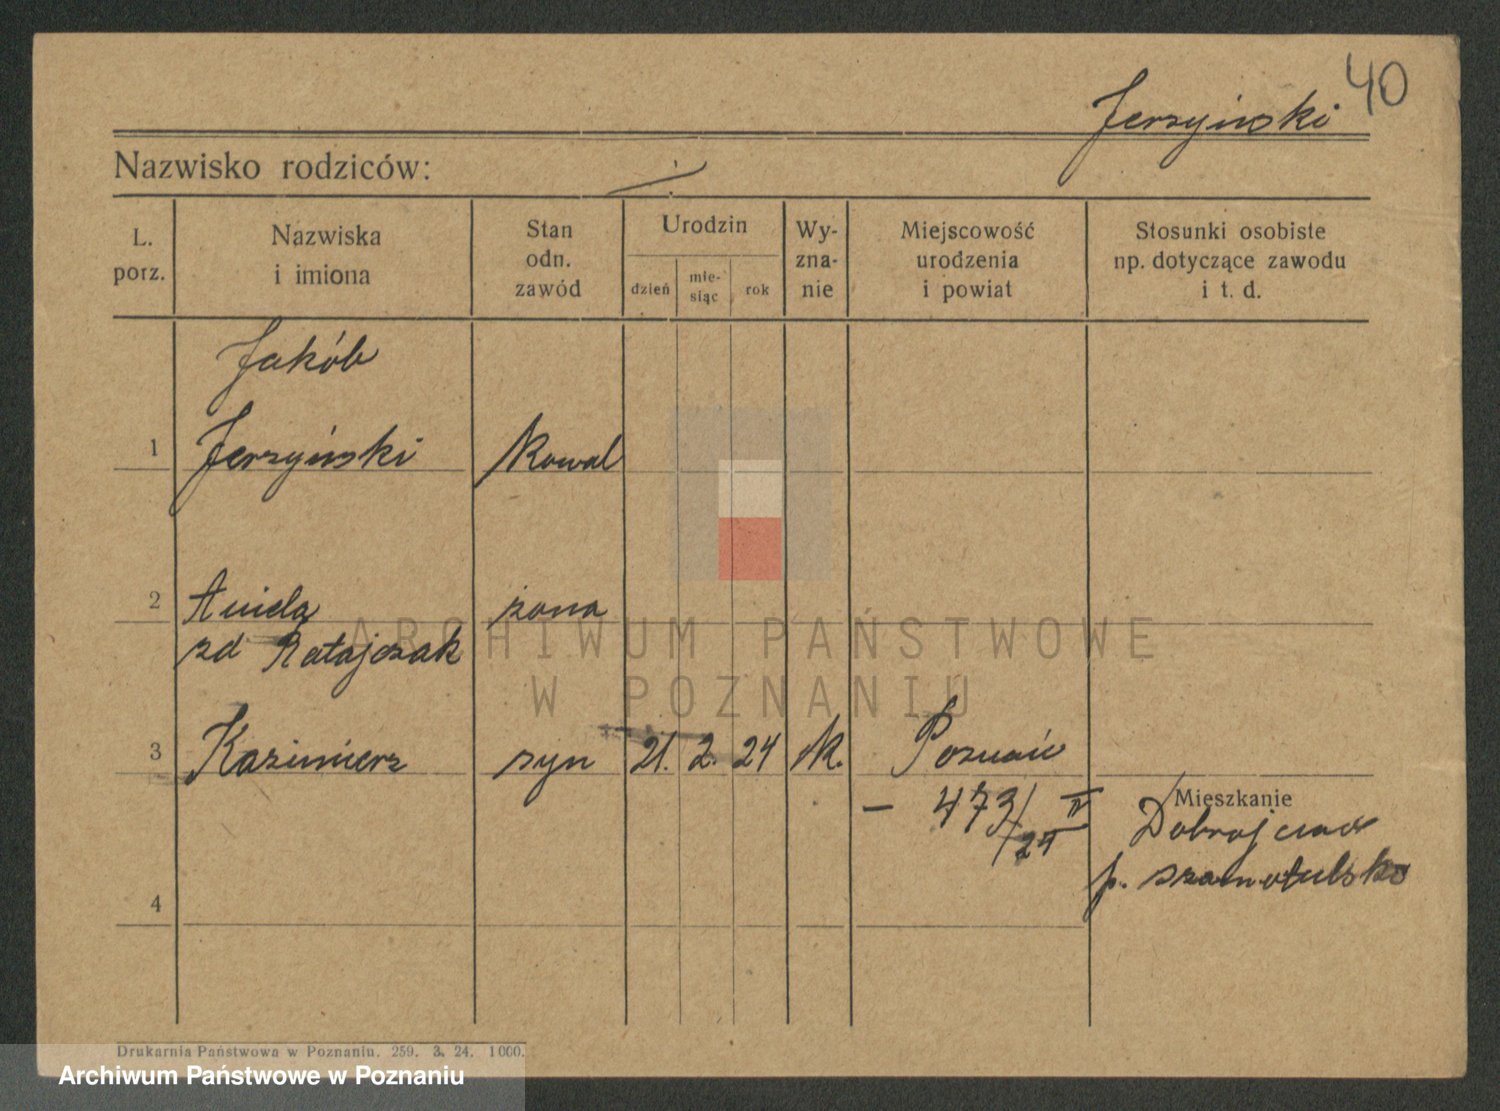 40
Jerzyiński
Nazwisko rodziców:
L. porz.
Nazwiska i imiona
Stan odn. zawód
Urodzin
dzień
mie-
siąc
rok
Wy-
zna-
nie
Miejscowość urodzenia i powiat
Stosunki osobiste np. dotyczące zawodu i t. d.
Jakób
1 Jerzyiński Kowal
2 Aniela żona
zd Ratajczak
3 Kazimierz syn 21. 2. 24 k. Poznań
– 473/24 II
Mieszkanie
p. szamotulsko
4
Drukarnia Państwowa w Poznaniu. 259. 3. 24. 1000.
ARCHIWUM PAŃSTWOWE
W POZNANIU
Archiwum Państwowe w Poznaniu